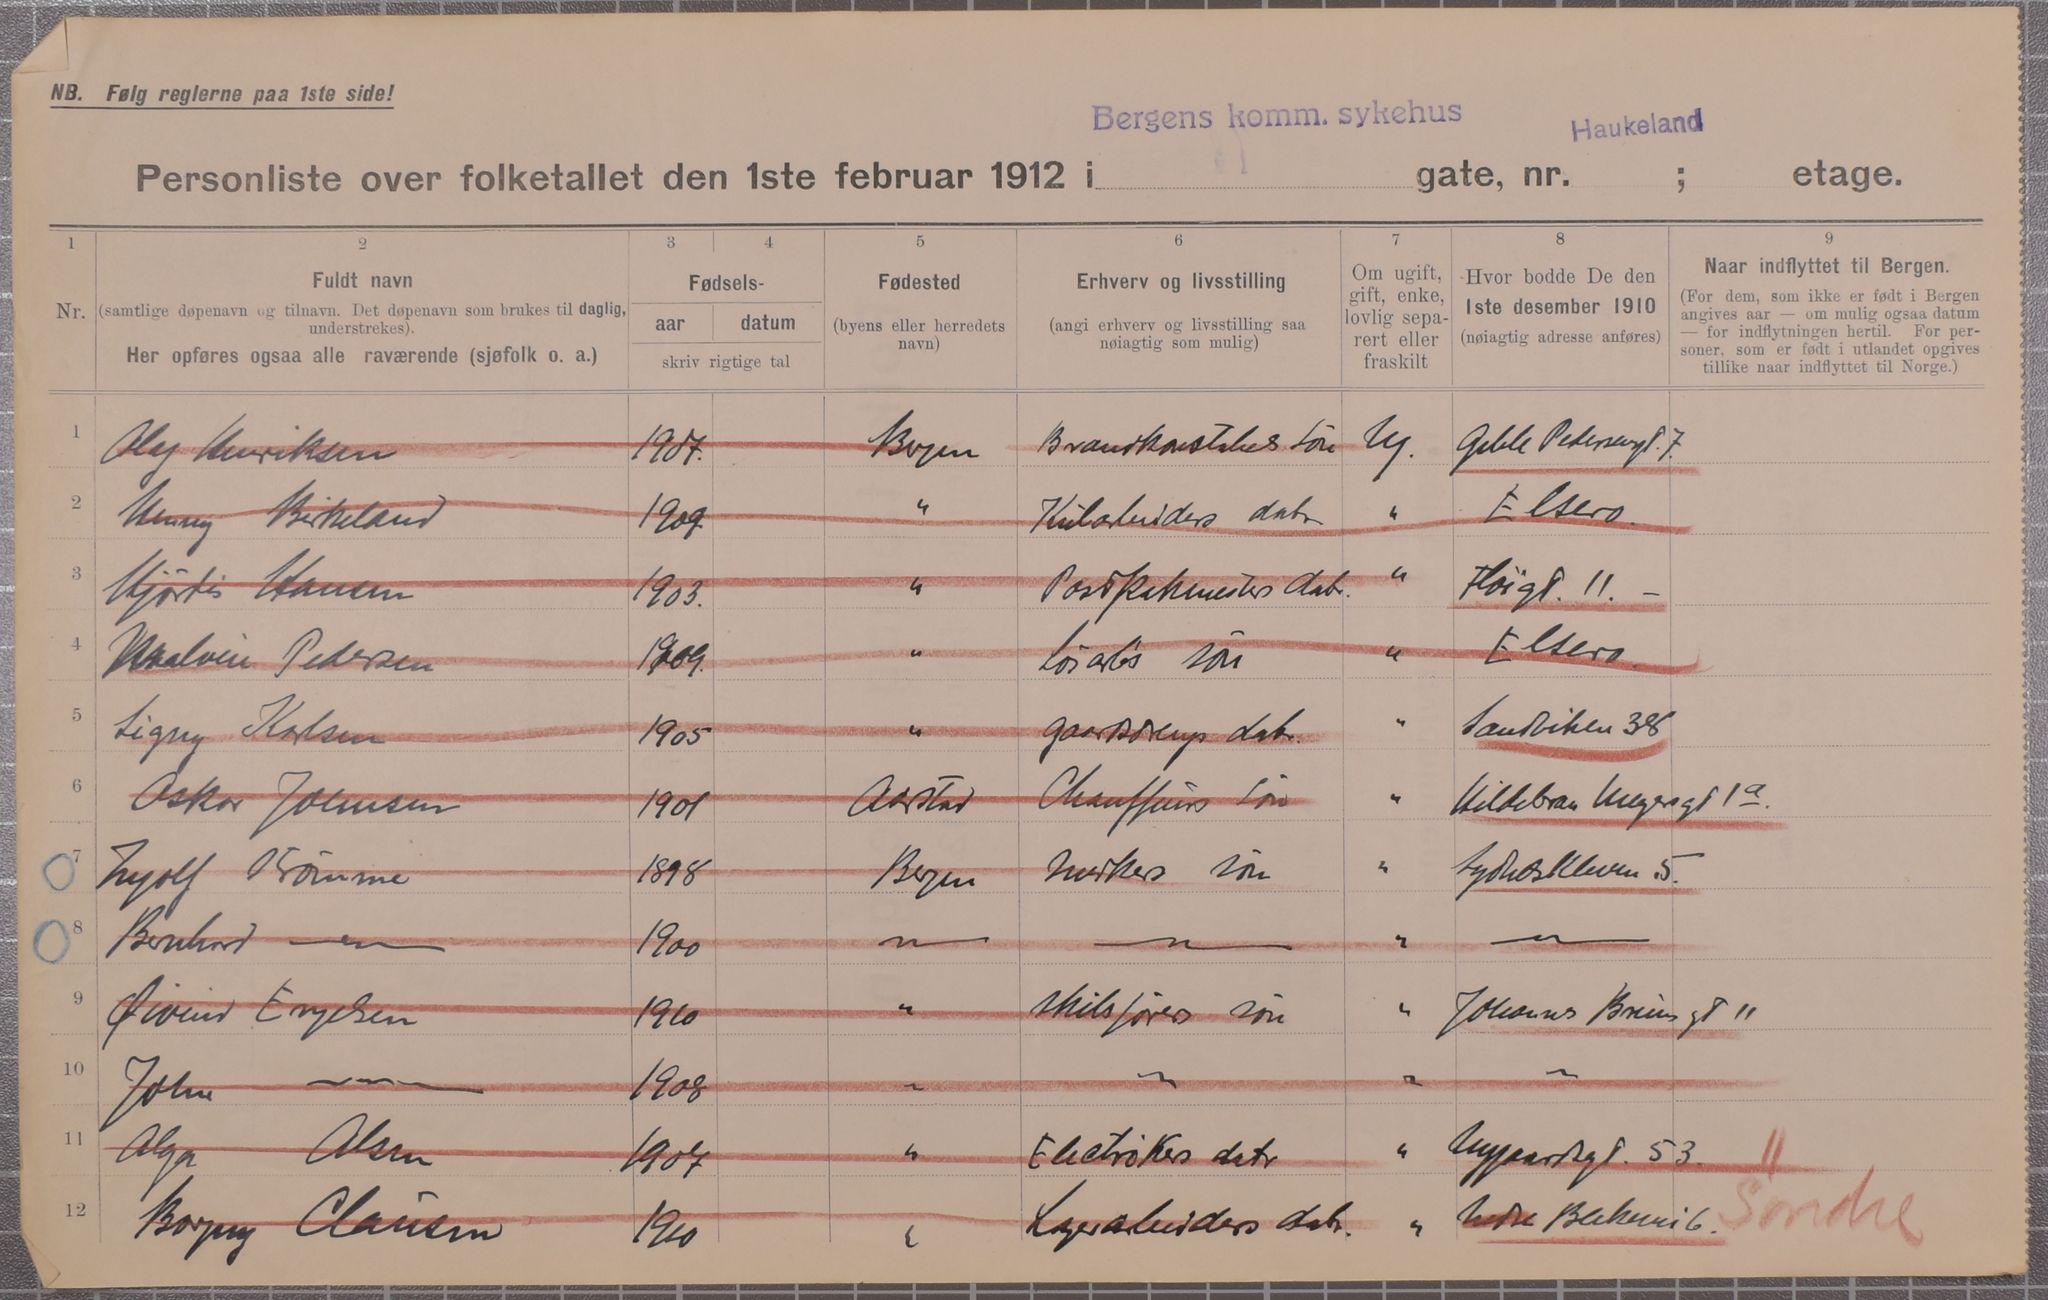 NB. Følg reglerne paa 1ste side!
Bergens komm. sykehus Haukeland
Personliste over folketallet den 1ste februar 1912 i gate, nr. ; etage.
1 2 3 4 5 6 7 8 9
Nr.
Fuldt navn
(samtlige døpenavn og tilnavn. Det døpenavn som brukes til daglig,
understrekes).
Her opføres ogsaa alle raværende (sjøfolk o. a.)
Fødsels-
aar datum
skriv rigtige tal
Fødested
(byens eller herredets
navn)
Erhverv og livsstilling
(angi erhverv og livsstilling saa
nøiagtig som mulig)
Om ugift,
gift, enke,
lovlig sepa-
rert eller
fraskilt
Hvor bodde De den
1ste desember 1910
(nøiagtig adresse anføres)
Naar indflyttet til Bergen.
(For dem, som ikke er født i Bergen
angives aar — om mulig ogsaa datum
— for indflytningen hertil. For per-
soner, som er født i utlandet opgives
tillike naar indflyttet til Norge.)
1 Olaf Henriksen 1907. Bergen Brandkonstabels søn Ug. Geble Pedersengt. 7.
2 Henny Birkeland 1909. " Kularbeiders datr " Elsero.
3 Hjørdis Hansen 1903. " Postpakmesters datr. " Fløigt. 11. –
4 Malvin Pedersen 1909. " Løsarb's søn " Elsero.
5 Signy Karlsen 1905 " Gaardsdrengs datr. " Sandviken 38
6 Oskar Johnsen 1901 Aarstad Chauffeurs søn " Hildebran Meyersgt 1a.
7 Ingolf Frømme 1898 Bergen søn " Sydneskleven 5.
8 Bernhard — " — 1900 — " — — " — " — " —
9 Øivind Engelsen 1910 " søn " Johannes Brunsgt 11
10 John — " — 1908 " " " "
11 Olga Olsen 1907 " Electrikers datr " Nygaardsgt. 53.
12 Borgny Clausen 1910 " Lagerarbeiders datr. " Indre Bakken 6. " Søndre